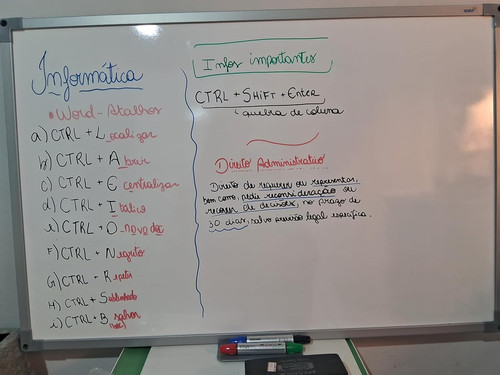 Informática
• Word - Atalhos
a) CTRL + Localizar
b) CTRL + Abrir
c) CTRL + E centralizar
d) CTRL + Itálico
e) CTRL + O - novo doc
F) CTRL + Negrito
G) CTRL + Repetir
H) CTRL + Sublinhado
i) CTRL + B salvar
(doc)
Infos importantes
CTRL + SHiFT + Enter
quebra de coluna
Direito Administrativo
Direito de requerer ou representar,
bem como, pedir reconsideração ou
recorrer de decisões, no prazo de
30 dias, salvo previsão legal específica.